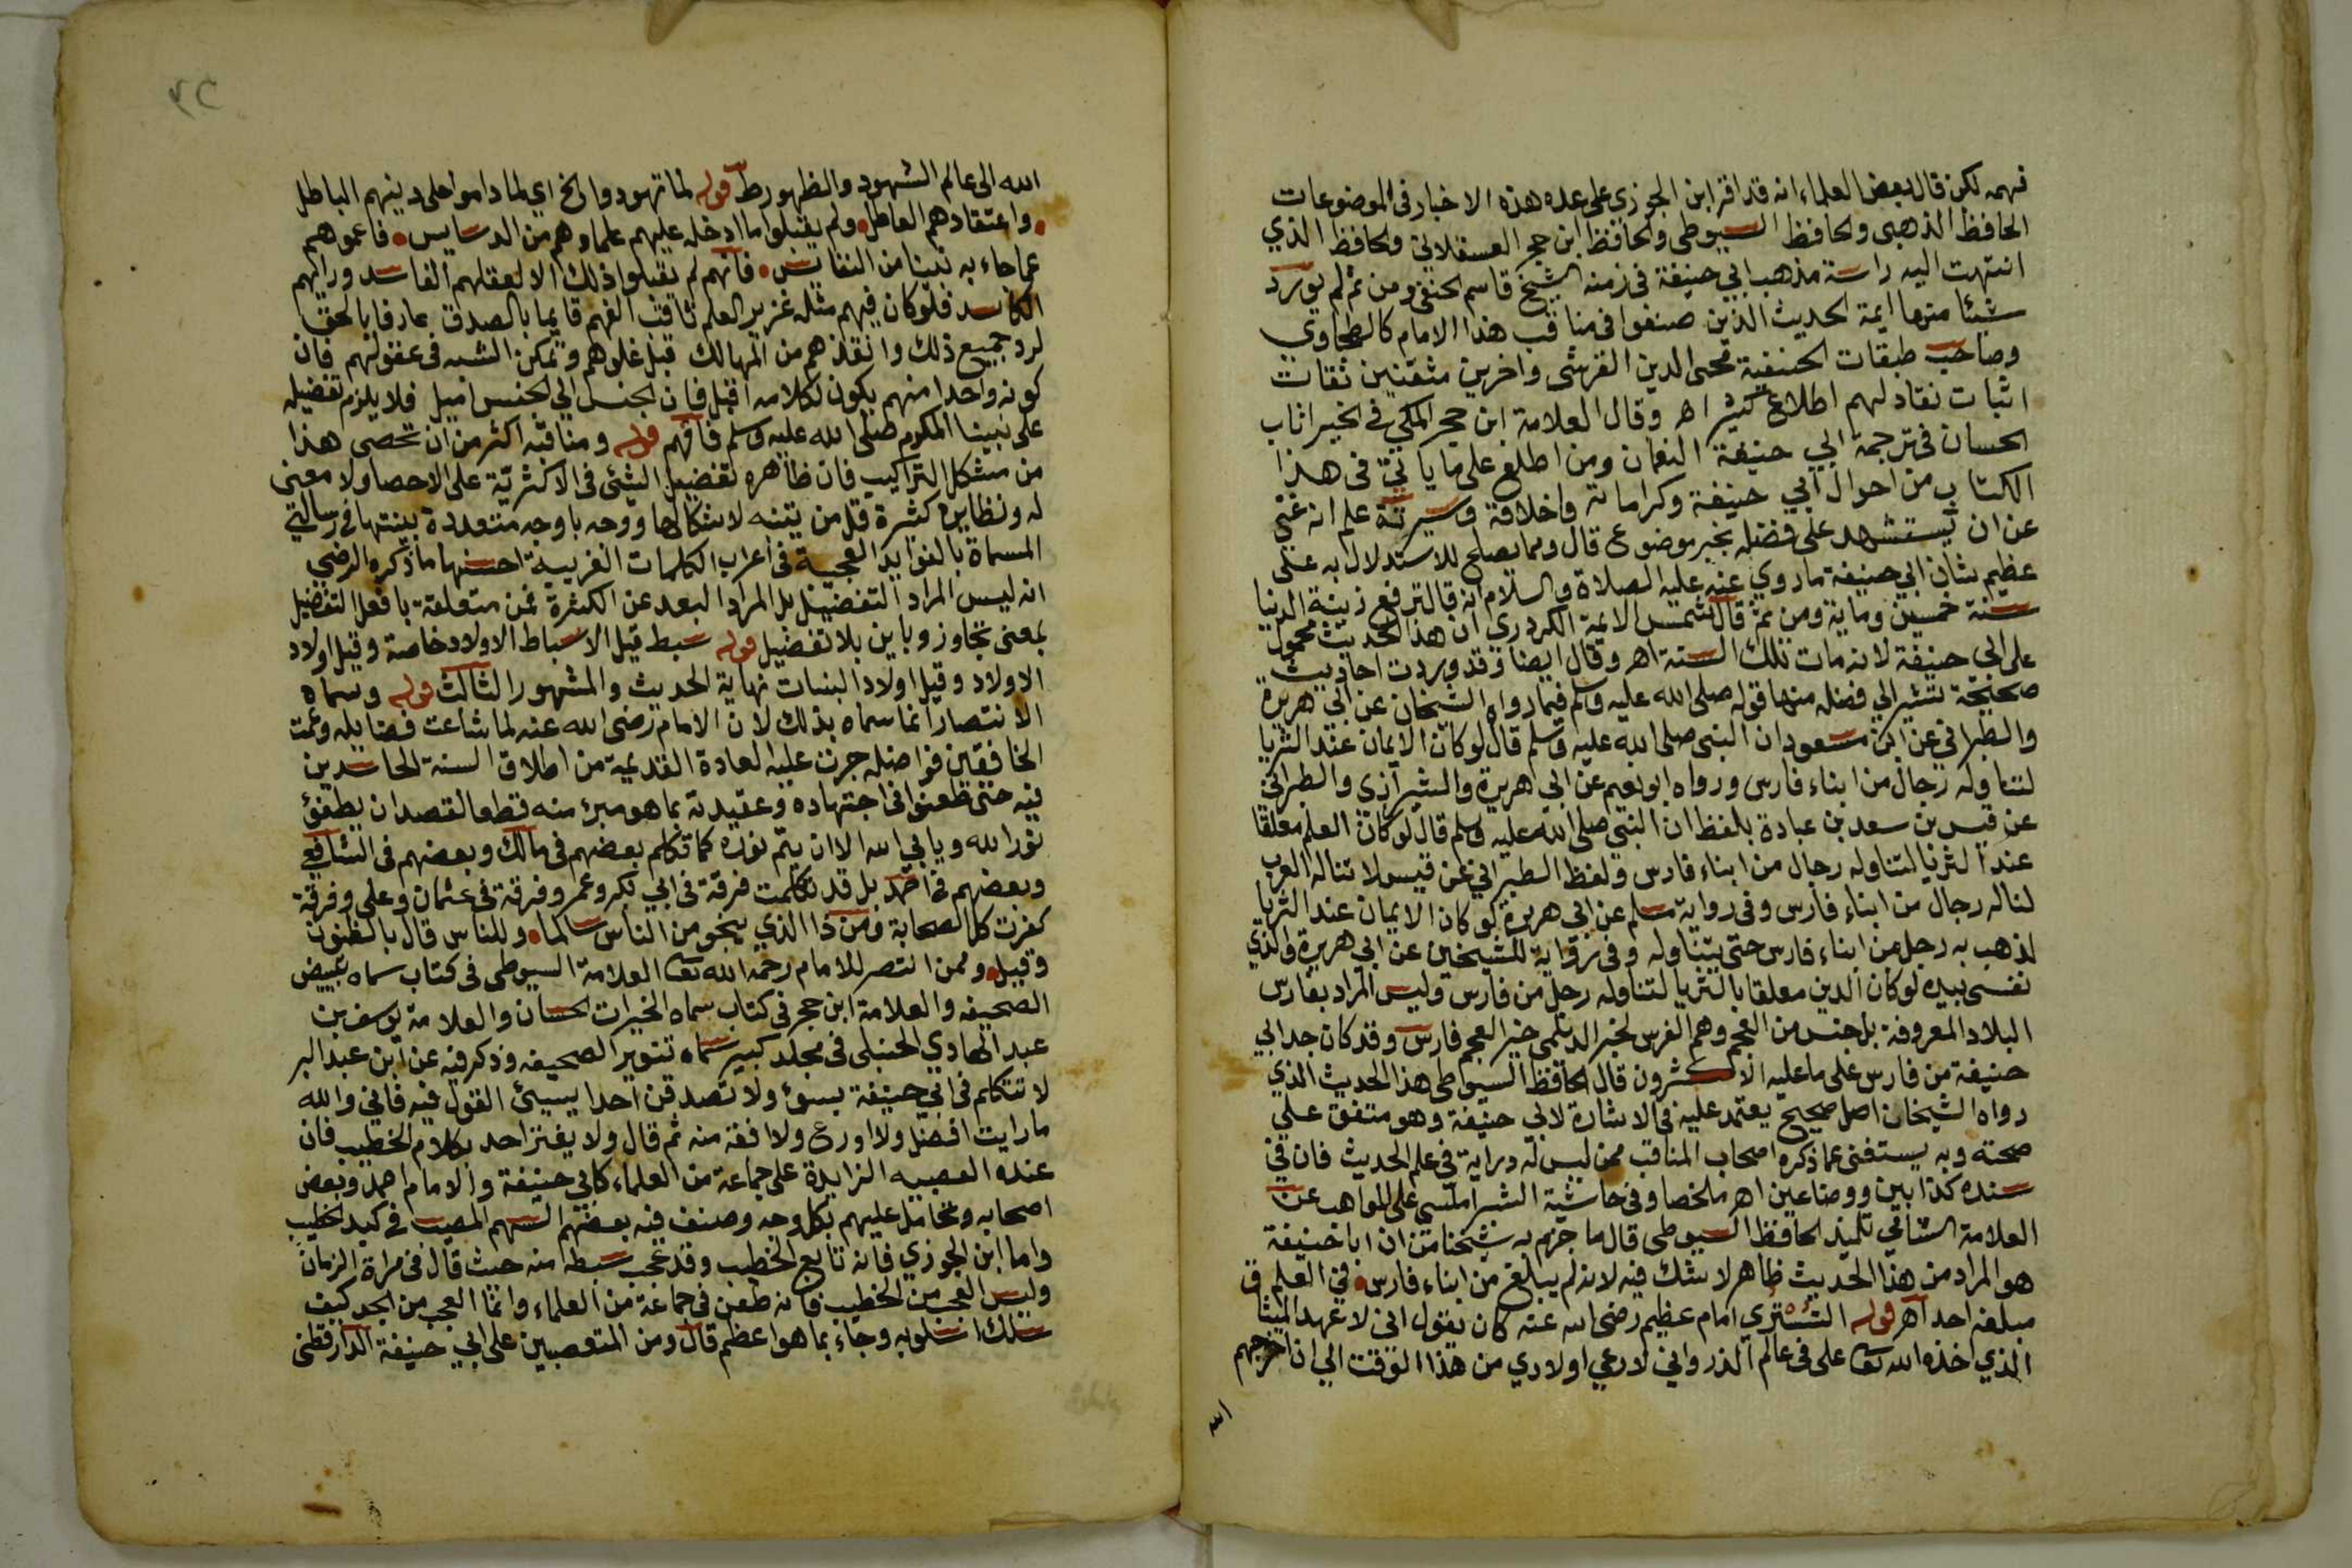 فهمه لكن قال بعض العلماء انه قد اقر ابن الجوزي على عده هذه الاخبار في الموضوعات
الحافظ الذهبى والحافظ السيوطى والحافظ ابن حجر العسقلاني والحافظ الذي
انتهت اليه راسة مذهب ابي حنيفة فى زمنه الشيخ قاسم الحنفى ومن ثم لم يورد
شيئا منها ايمة الحديث الذين صنفوا فى مناقب هذا الامام كالطحاوي
وصاحب طبقات الحنفية محى الدين القرشى واخرين متقنين ثقات
اثبات نقاد لهم اطلاع كثير اهـ وقال العلامة ابن حجر المكي في الخيرات
الحسان فى ترجمة ابي حنيفة النعمان ومن اطلع على ما ياتي فى هذا
الكتاب من احوال ابي حنيفة وكراماته واخلاقه وسيرته علم انه غني
عن ان يستشهد على فضله بخبر موضوع قال ومما يصلح للاستدلال به على
عظيم شان ابي حنيفة ما روي عنه عليه الصلاة والسلام انه قال ترفع زينة الدنيا
سنة خمسين وماية ومن ثم قال شمس الايمة الكردري ان هذا الحديث محمول
على ابى حنيفة لانه مات تلك السنة اهـ وقال ايضا وقد وردت احاديث
صحيحة تشير الي فضله منها قوله صلى الله عليه وسلم فيما رواه الشيخان عن ابي هريرة
والطبراني عن ابن مسعود ان النبى صلى الله عليه وسلم قال لو كان الايمان عند الثريا
لتناوله رجال من ابناء فارس ورواه ابو نعيم عن ابي هريرة والشيرازي والطبراني
عن قيس بن سعد بن عبادة بلفظ ان النبي صلى الله عليه وسلم قال لو كان العلم معلقا
عند الثريا لتناوله رجال من ابناء فارس ولفظ الطبراني عن قيس لا تناله العرب
لناله رجال من ابناء فارس وفى رواية مسلم عن ابي هريرة لو كان الايمان عند الثريا
لذهب به رجل من ابناء فارس حتى يتناوله وفى رواية للشيخين عن ابي هريرة والذي
نفسى بيده لو كان الدين معلقا بالثريا لتناوله رجل من فارس وليس المراد بفارس
البلاد المعروفة بل جنس من العجم وهم الفرس لخبر الديلمى خير العجم فارس وقد كان جد ابي
حنيفة من فارس على ما عليه الاكثرون قال الحافظ السيوطى هذا الحديث الذي
رواه الشيخان اصل صحيح يعتمد عليه فى الاشارة لابي حنيفة وهو متفق على
صحته وبه يستغنى عما ذكره اصحاب المناقب ممن ليس له دراية في علم الحديث فان في
سنده كذابين ووضاعين اهـ ملخصا وفى حاشية الشبراملسي على المواهب عن
العلامة الشامي تلميذ الحافظ السيوطى قال ما جزم به شيخنا من ان ابا حنيفة
هو المراد من هذا الحديث ظاهر لا شك فيه لانه لم يبلغ من ابناء فارس في العلم
مبلغه احد اهـ قوله التستري امام عظيم رضى الله عنه كان يقول انى لا عهد الميثاق
الذي اخذه الله تعا على فى عالم الذر واني لارعي اولادي من هذا الوقت الي ان اخرجهم
الله
٢٣
الله الى عالم الشهود والظهور ط قوله لما تهودوا الخ اي لما داموا على دينهم الباطل
واعتقادهم العاطل ولم يقبلوا ما ادخله عليهم علماوهم من الدسايس فاعموهم
عما جاء به نبينا من النفايس فانهم لم يقبلوا ذلك الا لعقلهم الفاسد ورايهم
الكاسد فلو كان فيهم مثله غزير العلم ثاقب الفهم قايما بالصدق عارفا بالحق
لرد جميع ذلك وانقذهم من المهالك قبل غلوهم وتمكن الشبه فى عقولهم فان
كونه واحدا منهم يكون لكلامه اقبل فان الجنس الي الجنس اميل فلا يلزم تفضيله
على نبينا المكرم صلى الله عليه وسلم فافهم قوله ومناقبه اكثر من ان تحصى هذا
من مشكل التراكيب فان ظاهره تفضيل الشئ فى الاكثرية على الاحصا ولا معنى
له ونظايره كثيرة قل من يتنبه لاشكالها ووجه باوجه متعددة بينتها في رسالتي
المسماة بالفوايد العجيبة فى اعراب الكلمات الغريبة احسنها ما ذكره الرضي
انه ليس المراد التفضيل بل المراد البعد عن الكثرة فمن متعلقة بافعل التفضيل
بمعنى تجاوز وباين بلا تفضيل قوله سبط قيل الاسباط الاولاد خاصة وقيل اولاد
الاولاد وقيل اولاد البنات نهاية الحديث والمشهور الثالث قوله وسماه
الانتصار انما سماه بذلك لان الامام رضى الله عنه لما شاعت فضايله وعمت
الخافقين فواضله جرت عليه العادة القديمة من اطلاق السنة الحاسدين
فيه حتى طعنوا فى اجتهاده وعقيدته بما هو مبرئ منه قطعا لقصد ان يطفئ
نور الله ويابي الله الا ان يتم نوره كما تكلم بعضهم فى مالك وبعضهم فى الشافعي
وبعضهم في احمد بل قد تكلمت فرقة فى ابي بكر وعمر وفرقة فى عثمان وعلى وفرقة
كفرت كل الصحابة ومن ذا الذي ينجو من الناس سالما وللناس قال بالظنون
وقيل وممن انتصر للامام رحمه الله تعا العلامة السيوطى فى كتاب سماه تبييض
الصحيفه والعلامة ابن حجر فى كتاب سماه الخيرات الحسان والعلامة يوسف بن
عبد الهادي الحنبلى فى مجلد كبير سماه تنوير الصحيفه وذكر فيه عن ابن عبد البر
لا تتكلم فى ابي حنيفة بسوء ولا تصدقن احدا يسيئ القول فيه فاني والله
ما رايت افضل ولا اورع ولا افقه منه ثم قال ولا يغتر احد بكلام الخطيب فان
عنده العصبيه الزايدة على جماعة من العلماء كابي حنيفة والامام احمد وبعض
اصحابه وتحامل عليهم بكل وجه وصنف فيه بعضهم السهم المصيب في كبد الخطيب
واما ابن الجوزي فانه تابع الخطيب وقد عجب سبطه منه حيث قال فى مراة الزمان
وليس العجب من الخطيب فانه طعن في جماعة من العلماء وانما العجب من الجد كيف
سلك اسلوبه وجاء بما هو اعظم قال ومن المتعصبين على ابي حنيفة الدارقطنى